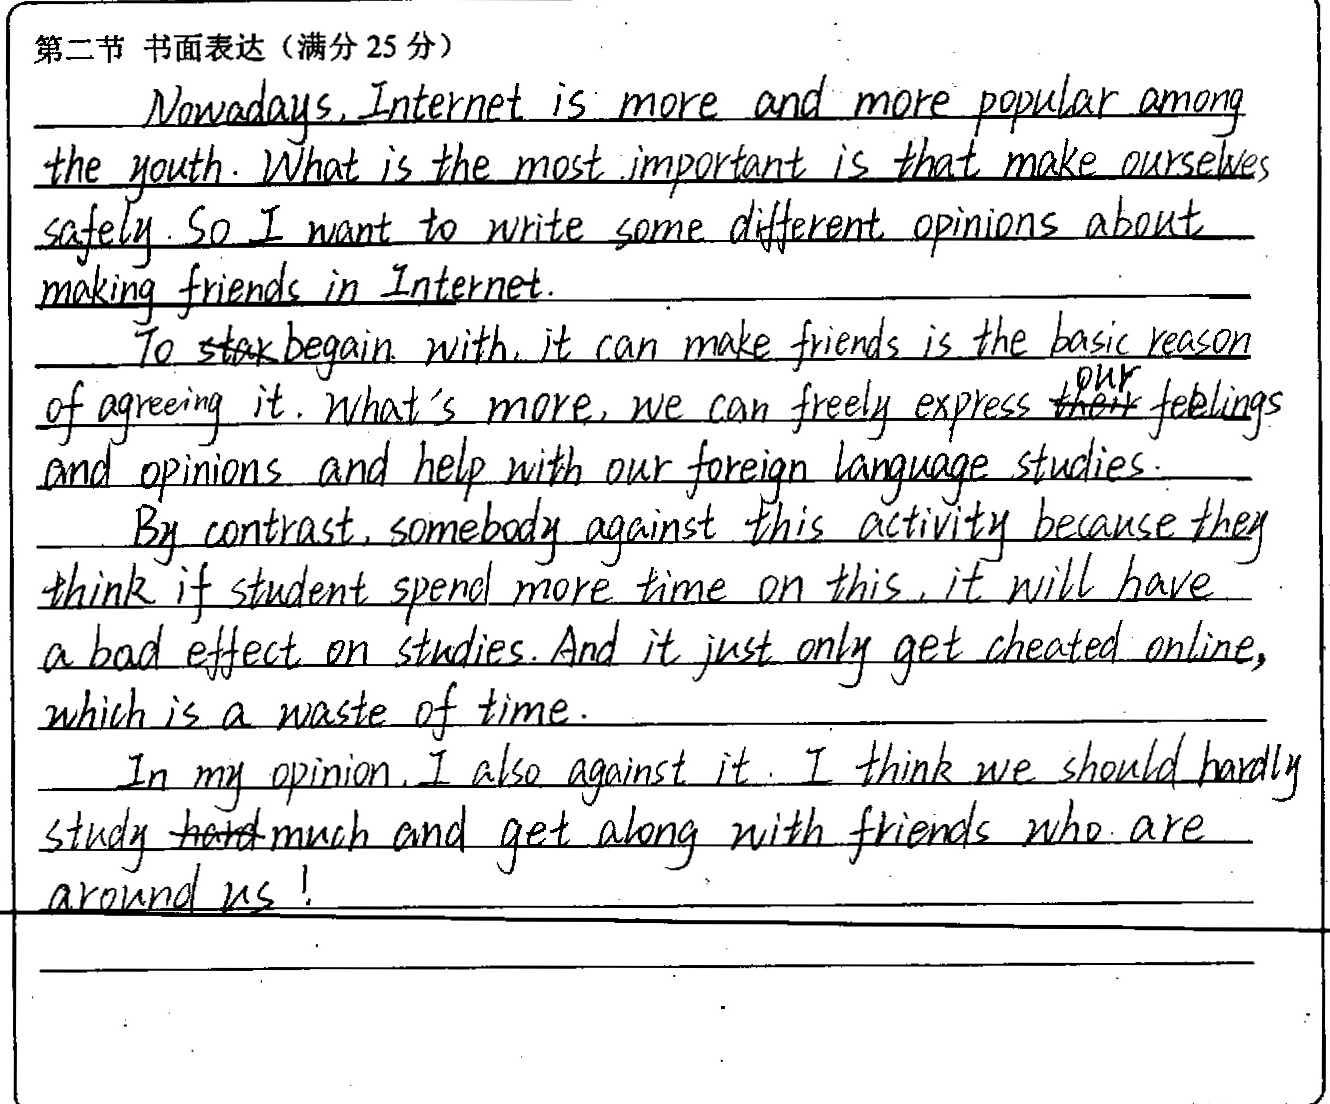 第二节 书面表达（满分 25 分）
Nowadays, Internet is more and more popular among
the youth. What is the most important is that make ourselves
safely. So I want to write some different opinions about
making friends in Internet.
To star begain with, it can make friends is the basic reason
of agreeing it. What's more, we can freely express their our feelings
and opinions and help with our foreign language studies.
By contrast, somebody against this activity because they
think if student spend more time on this, it will have
a bad effect on studies. And it just only get cheated online,
which is a waste of time.
In my opinion, I also against it. I think we should hardly
study hard much and get along with friends who are
around us!